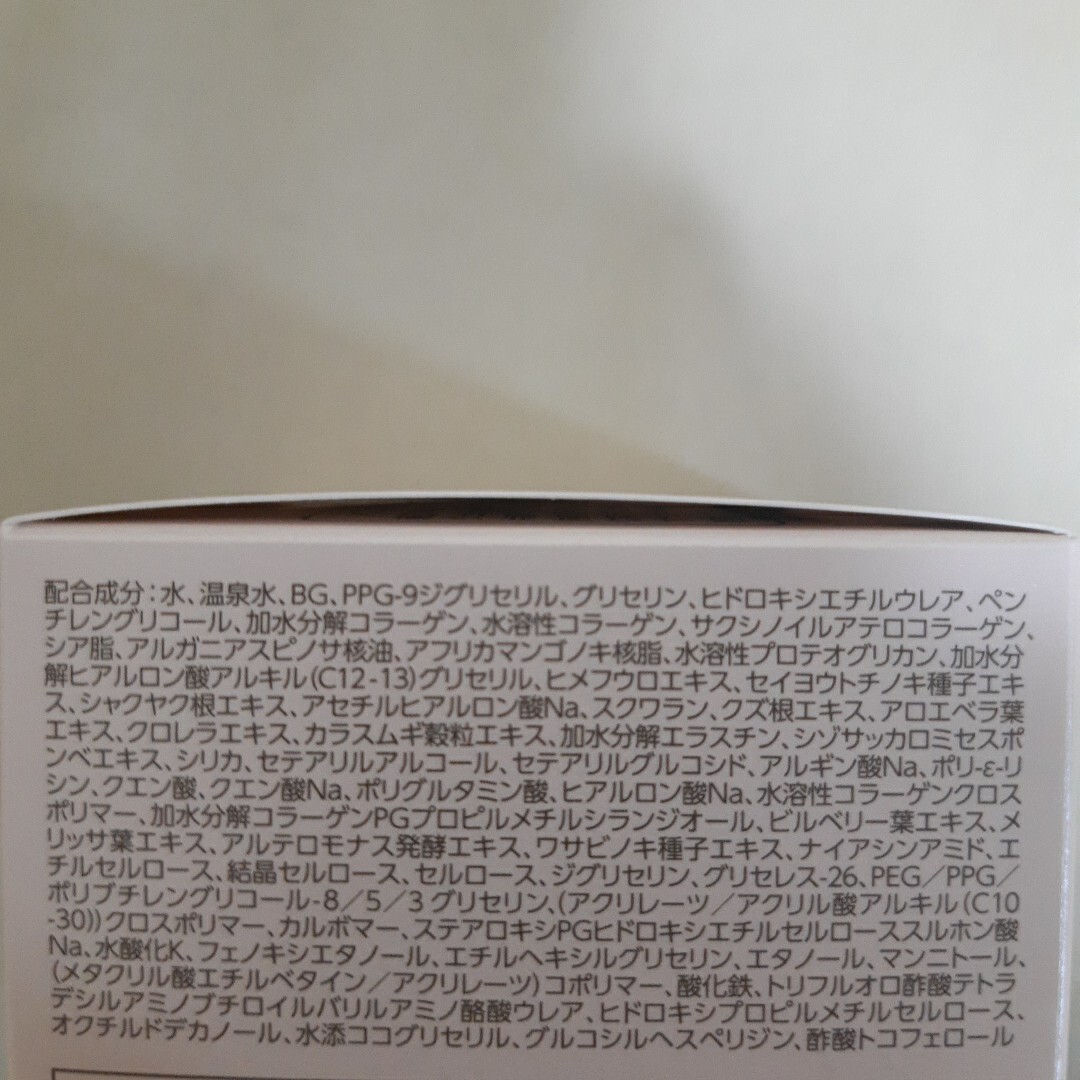 配合成分：水、温泉水、BG、PPG-9ジグリセリル、グリセリン、ヒドロキシエチルウレア、ペン
チレングリコール、加水分解コラーゲン、水溶性コラーゲン、サクシノイルアテロコラーゲン、
シア脂、アルガニアスピノサ核油、アフリカマンゴノキ核脂、水溶性プロテオグリカン、加水分
解ヒアルロン酸アルキル(C12-13)グリセリル、ヒメフウロエキス、セイヨウトチノキ種子エキ
ス、シャクヤク根エキス、アセチルヒアルロン酸Na、スクワラン、クズ根エキス、アロエベラ葉
エキス、クロレラエキス、カラスムギ穀粒エキス、加水分解エラスチン、シゾサッカロミセスポ
ンベエキス、シリカ、セテアリルアルコール、セテアリルグルコシド、アルギン酸Na、ポリ-ε-リ
シン、クエン酸、クエン酸Na、ポリグルタミン酸、ヒアルロン酸Na、水溶性コラーゲンクロス
ポリマー、加水分解コラーゲンPGプロピルメチルシランジオール、ビルベリー葉エキス、メ
リッサ葉エキス、アルテロモナス発酵エキス、ワサビノキ種子エキス、ナイアシンアミド、エ
チルセルロース、結晶セルロース、セルロース、ジグリセリン、グリセレス-26、PEG／PPG／
ポリブチレングリコール-8／5／3グリセリン、(アクリレーツ／アクリル酸アルキル(C10
-30))クロスポリマー、カルボマー、ステアロキシPGヒドロキシエチルセルローススルホン酸
Na、水酸化K、フェノキシエタノール、エチルヘキシルグリセリン、エタノール、マンニトール、
(メタクリル酸エチルベタイン／アクリレーツ)コポリマー、酸化鉄、トリフルオロ酢酸テトラ
デシルアミノブチロイルバリルアミノ酪酸ウレア、ヒドロキシプロピルメチルセルロース、
オクチルドデカノール、水添ココグリセリル、グルコシルヘスペリジン、酢酸トコフェロール